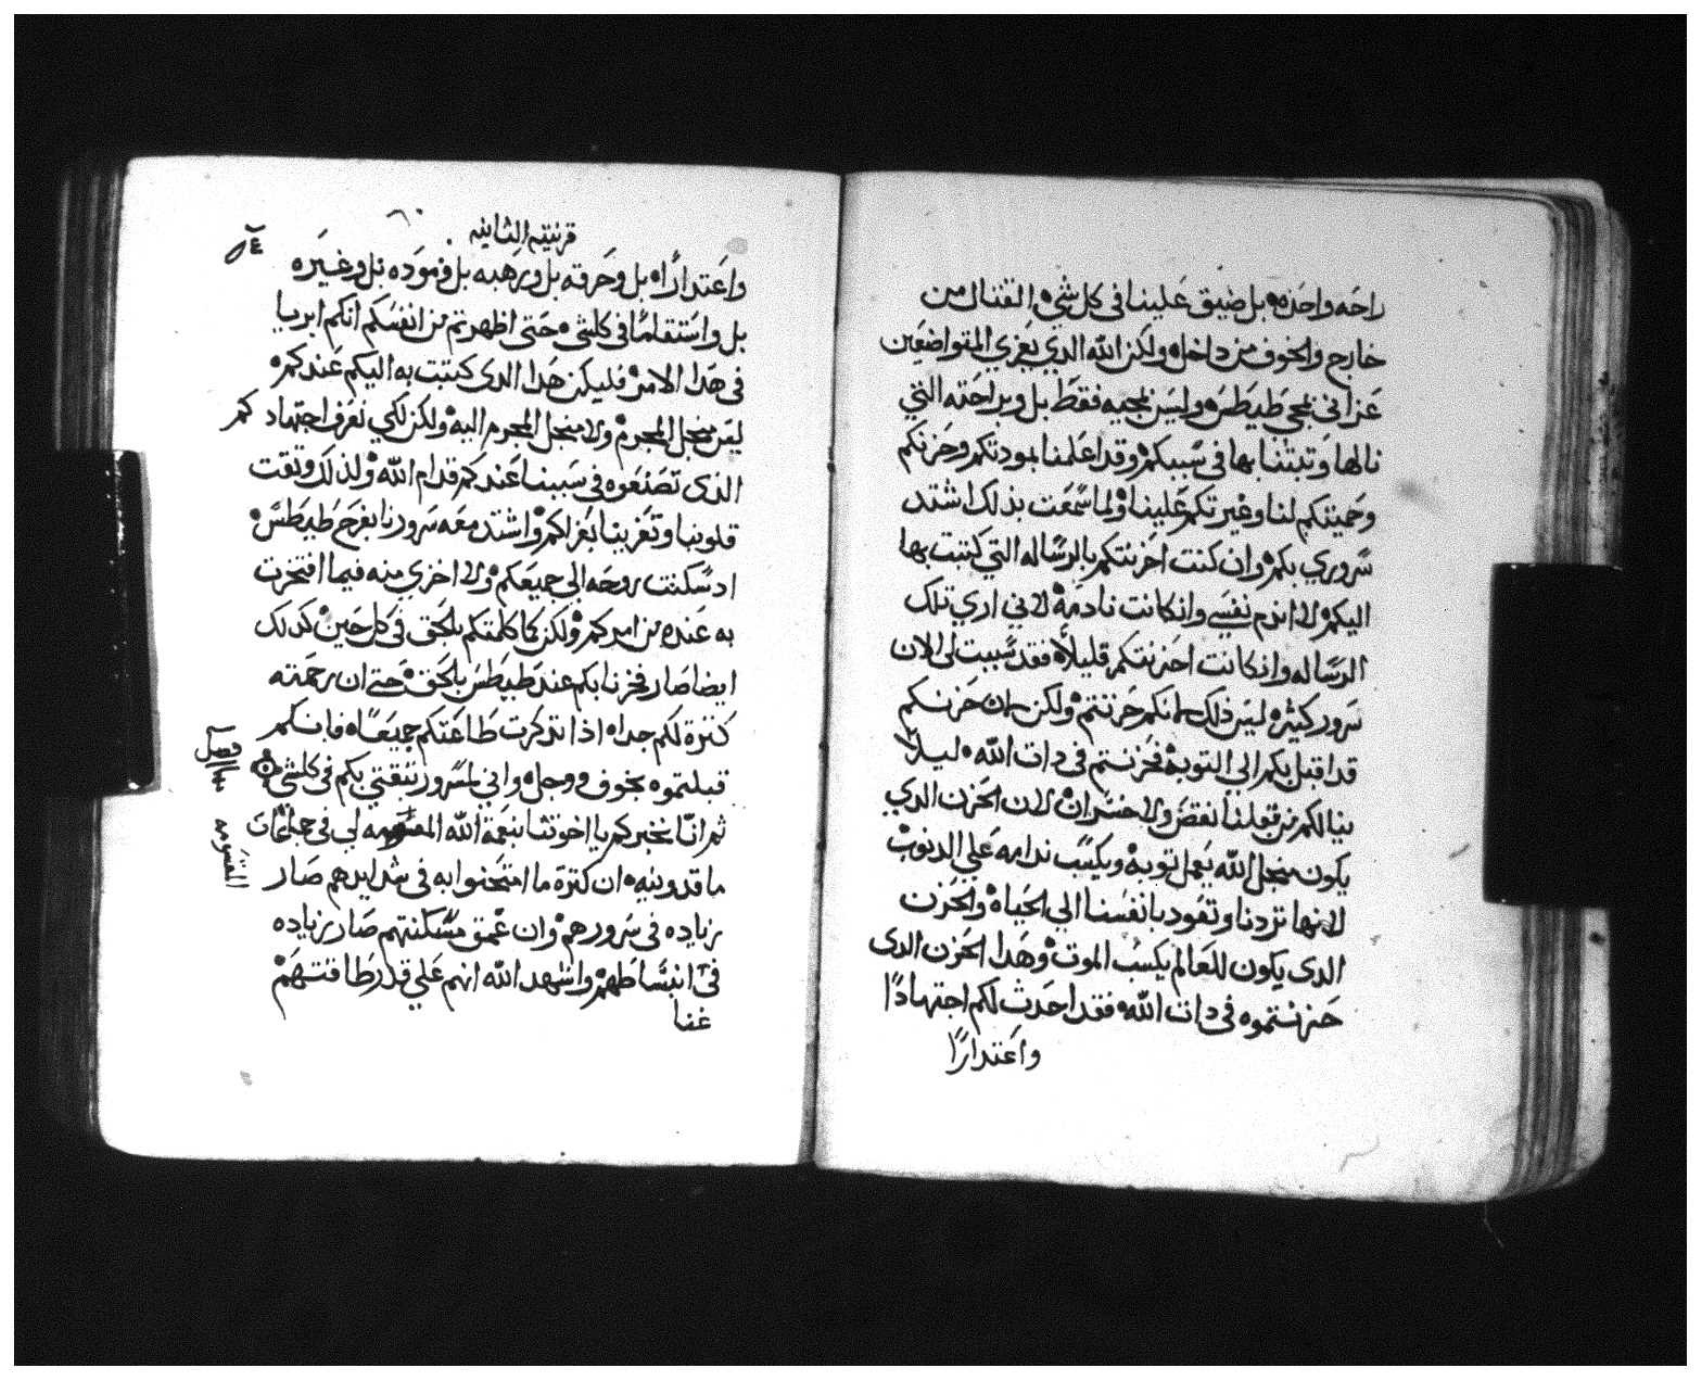 راحه واحده بل ضيق علينا في كل شي القتال من
خارج والخوف من داخل ولكن الله الدي يعزي المتواضعين
عزانى بمجى طيطس وليس بمجيه فقط بل وبراحته التي
نالها وتبتنا بها في سببكم وقد اعلمنا بمودتكم وحزنكم
وحميتكم لنا وغيرتكم علينا ولما سمعت بذلك اشتد
سروري بكم وان كنت احزنتكم بالرساله التي كتبت بها
اليكم لا اندم نفسي وان كانت نادمة لاني اري تلك
الرساله وان كانت احزنتكم قليلاً فقد سببت لى الان
سرور كثيره ليس ذلك لانكم حزنتم ولكن لان حزنكم
قد اقبل بكم الي التوبه فحزنتم في دات الله ليلا
ينالكم من قبلنا نقص ولا خسران لان الحزن الدي
يكون منجل الله يعمل توبه ويكسب ندامه علي الدنوب
لانها تردنا وتقود بانفسنا الي الحياه والحزن
الدى يكون للعالم يكسب الموت وهدا الحزن الدى
حزنتموه في دات الله فقد احدث لكم اجتهادًا
واعتدارًا
قرنتيه الثانيه
٦٠
واعتدارًا بل وحرقه بل ورهبه بل ومودة بل وغيره
بل واستقلمًا في كلشي حتى اظهرتم من انفسكم انكم ابريا
فى هدا الامر فليكن هدا الدى كتبت به اليكم عندكم
ليس منجل المجرم ولا منجل المجروم اليه ولكن لكي نعرف اجتهادكم
الذى تصنعوه في سببنا عندكم قدام الله ولذلك وتقت
قلوبنا وتعزينا بعزاكم واشتد معه سرورنا بفرح طيطس
اد سكنت روحه الى جميعكم ولا اخزي منه فيما افتخرت
به عنده من امركم ولكن كما كلمتكم بالحق في كل حين كدلك
ايضا صار فخرنا بكم عند طيطس بالحق حتى ان رحمته
كترة لكم جدا اذا تدكرت طاعتكم جميعًا فانكم
قبلتموه بخوف ووجل واني لمسرور بتقتي بكم فى كلشي
فصل
ثم انّا نخبركم يا اخوتنا بنعمة الله لي في جماعات
المقسومه
ماقدونيه ان كترة ما امتحنوا به في شدايدهم صار
زياده في سرورهم وان عمق مسكنتهم صار بزياده
في انبساطهم واشهد الله انهم علي قدر طاقتهم
غنا